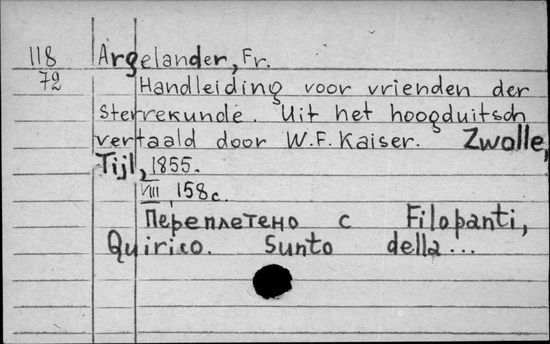 118 Argelander, Fr.
72 Handleiding voor vrienden der
sterrekunde. Uit het hoogduitsch
vertaald door W.F. Kaiser. Zwolle,
Tijl, 1855.
VIII, 158 c.
Переплетено с Filopanti,
Quirico. Sunto della ...